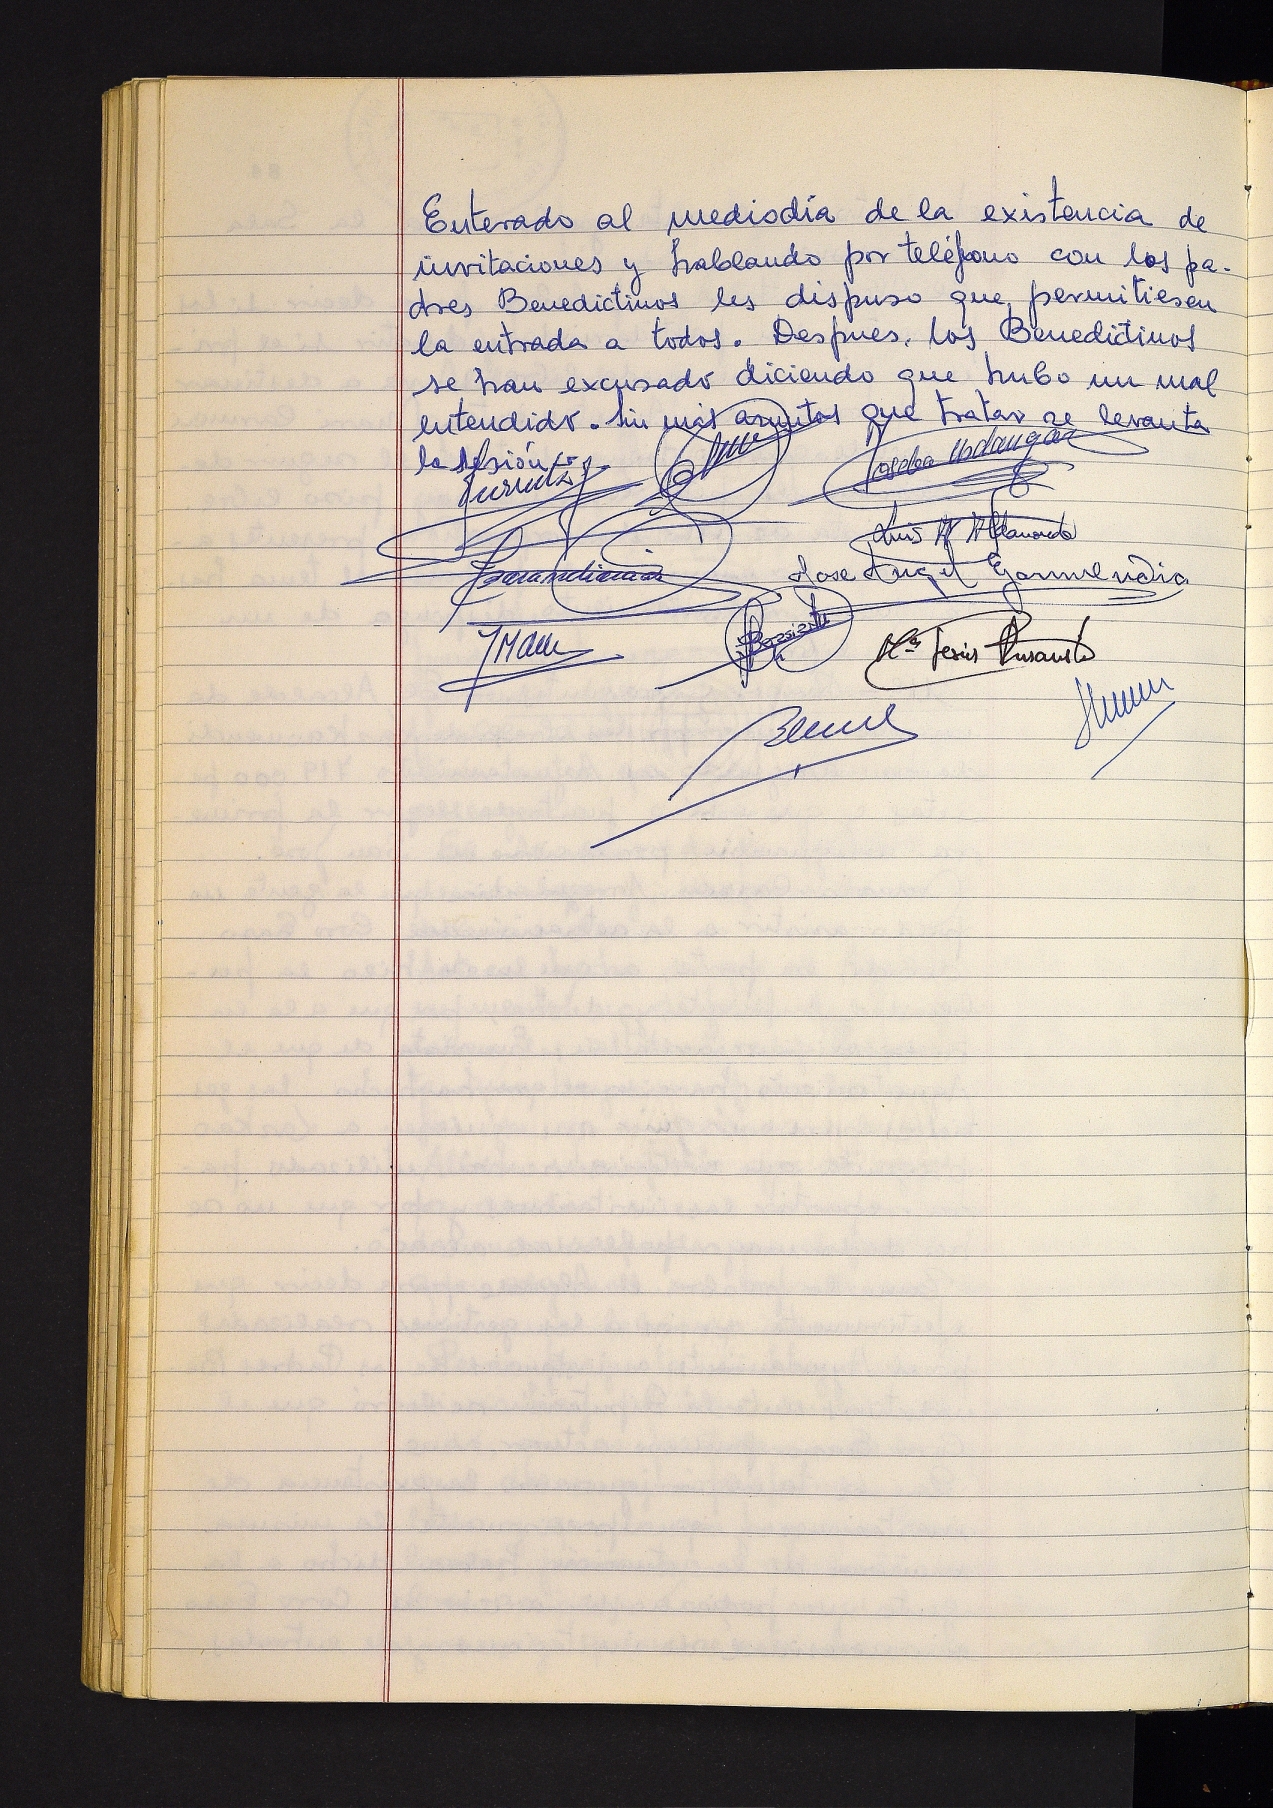 Enterado al mediodía de la existencia de
invitaciones y hablando por teléfono con los pa-
dres Benedictinos les dispuso que permitiesen
la entrada a todos. Despues, los Benedictinos
se han excusado diciendo que hubo un mal
entendido. Sin más asuntos que tratar se levanta
la sesión
Joseba
Luis Mª
Jose Angel Garmendia
Mª Jesús